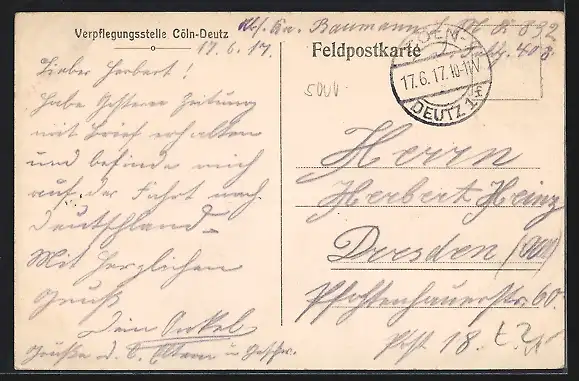 Verpflegungsstelle Cöln-Deutz
17.6.17.
Lieber Herbert!
Habe gestern Zeitung
mit Brief erhalten
und befinde mich
auf der Fahrt nach
Deutschland.
Mit herzlichen
Gruß
Dein Onkel
Grüße a. d. Eltern u. Geschw.
Abs. Kan. Baumann
Feldpostkarte
17.6.17.10-11V
DEUTZ 1 f
Herrn
Herbert Heinz
Dresden
Pfotenhauerstr. 60.
Post 18.